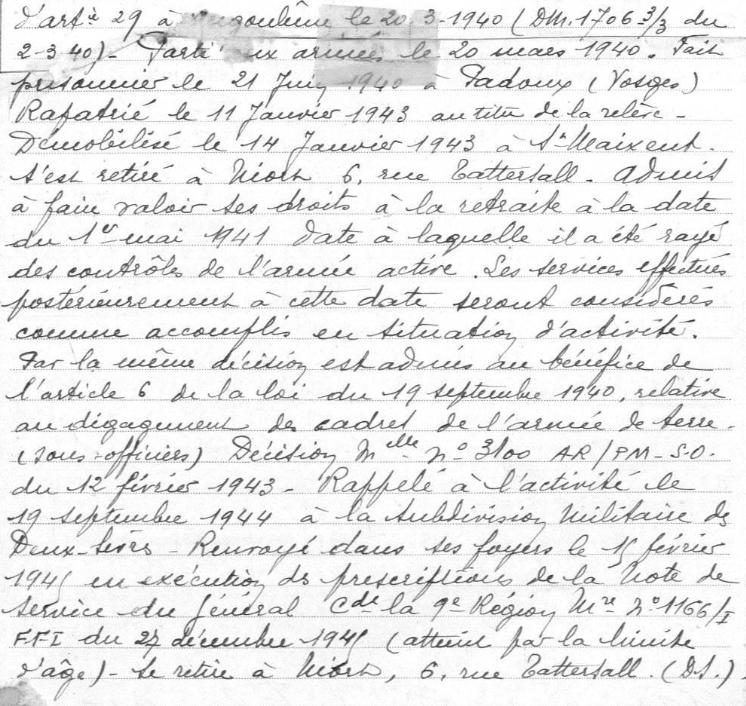 d'art^ie 29 à Angoulême le 20-3-1940 (DM. 1706 3/3 du
2-3-40) - Parti aux armées le 20 mars 1940. Fait
prisonnier le 21 Juin 1940 à Padoux (Vosges)
Rapatrié le 11 Janvier 1943 au titre de la relève -
Démobilisé le 14 Janvier 1943 à St Maixent.
S'est retiré à Niort 6, rue Tattersall - Admis
à faire valoir ses droits à la retraite à la date
du 1er mai 1941 date à laquelle il a été rayé
des contrôles de l'armée active. Les services effectués
postérieurement à cette date seront considérés
comme accomplis en situation d'activité.
Par la même décision est admis au bénéfice de
l'article 6 de la loi du 19 septembre 1940, relative
au dégagement des cadres de l'armée de terre.
(sous-officiers) Décision Melle no 3100 AR/PM-S.O.
du 12 février 1943 - Rappelé à l'activité le
19 septembre 1944 à la subdivision Militaire des
Deux-Sèvres - Renvoyé dans ses foyers le 15 février
1945 en exécution des prescriptions de la Note de
Service du Général Cdt la 9e Région Mre No 1166/I
FFI du 27 décembre 1945 (atteint par la limite
d'âge) - Se retire à Niort, 6, rue Tattersall. (D.S.).